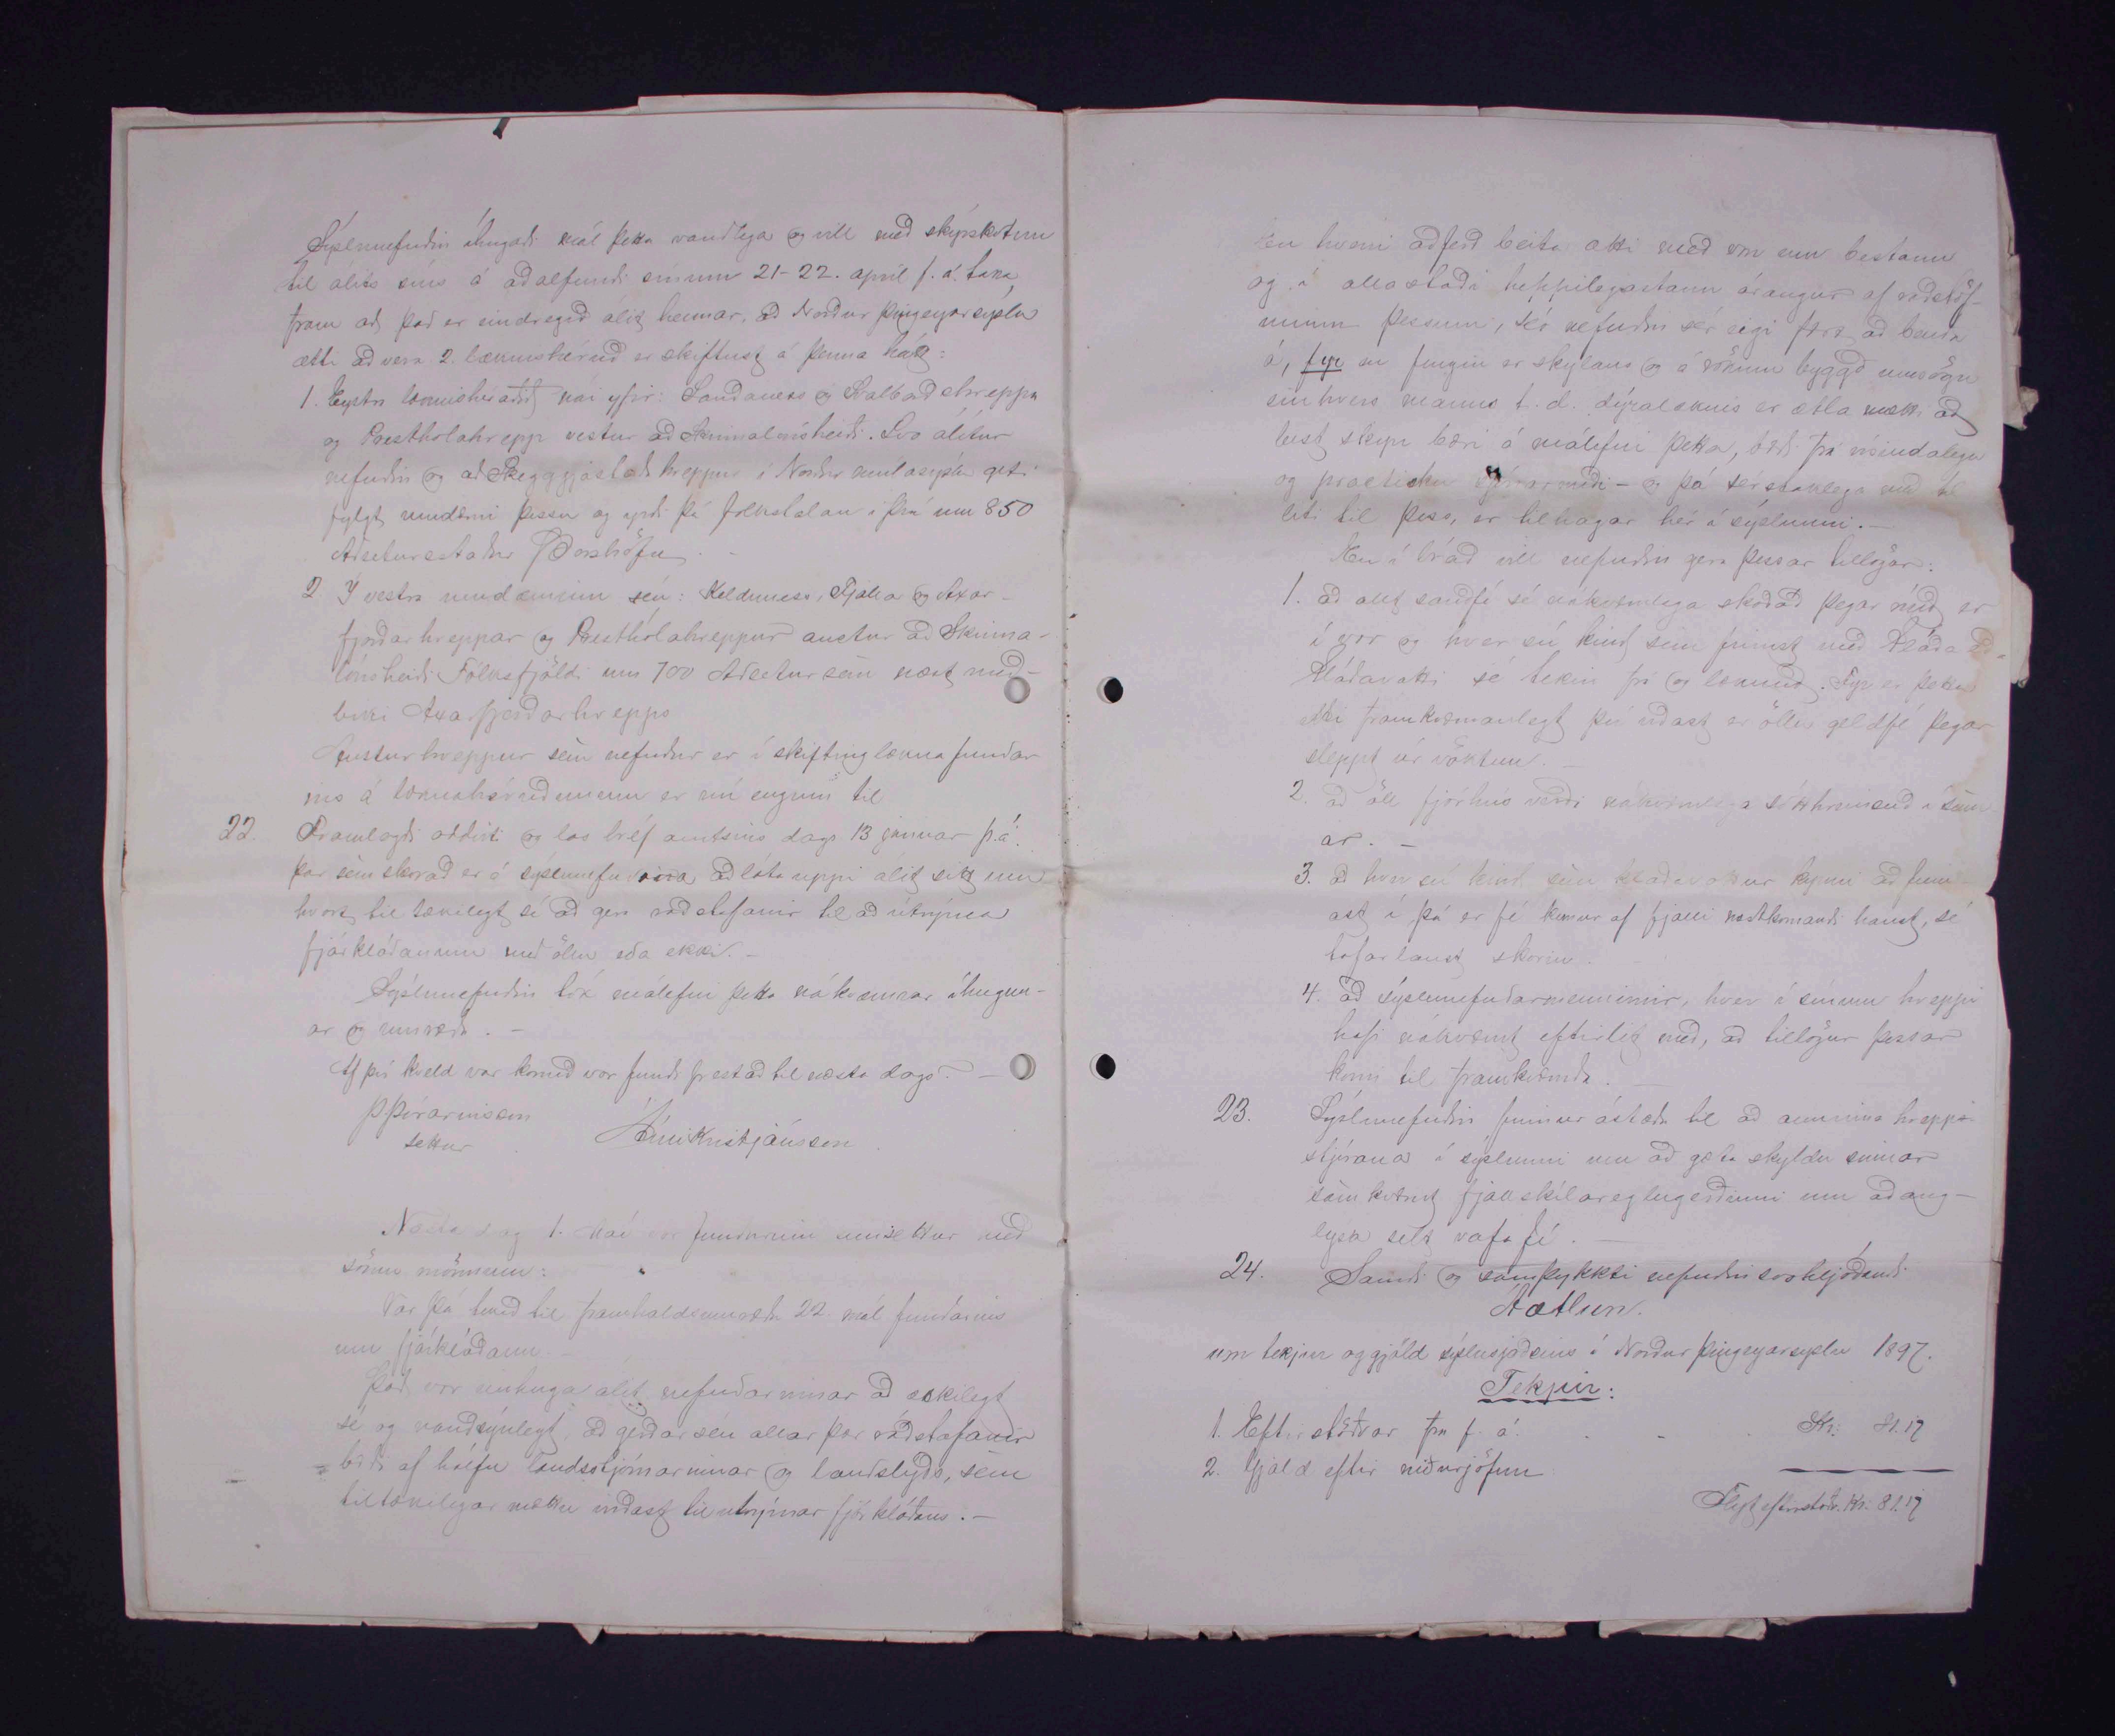 Sýslunefndin íhugaði mál þetta vandlega og vill með skýrskotun
til álits síns á aðalfundi sínum 21-22. apríl f. á. taka
fram að það er eindregið álit hennar, að Norður þingeyarsýsla
ætti að vera 2. læknishéruð er skiftust á þenna hátt:
1. Eystra læknishéraðið nái yfir: Sauðaness og Svalbarðshreppa
og Presthólahrepp vestur að Skinnalónsheiði. Svo álítur
nefndin og að Skeggjastaðahreppur í Norður múlasýslu geti
fylgt umdæmi þessu og yrði þá fólkstalan í því um 850
Aðsetursstaður Þórshöfn. -
2 Í vestra umdæminu séu: Kelduness, Fjalla og Axar-
fjarðarhreppar og Presthólahreppur austur að Skinna-
lónsheiði Fólksfjöldi um 700 Aðsetur sem næst mið-
biki Axarfjarðarhrepps
Austurhreppur sem nefndur er í skifting læknafundar
ins á læknahéruðunum er nú enginn til
22. Framlagði oddviti og las bréf amtsins dags 13 janúar þ.á.
þar sem skorað er á sýslunefndina að láta uppi álit sitt um
hvort tiltækilegt sé að gera ráðstafanir til að útrýma
fjárkláðanum með öllu eða ekki. -
Sýslunefndin tók málefni þetta nákvæmrar íhugun-
ar og umræðu. -
Af því kveld var komið var fundi frestað til næsta dags. -
B Þórarinsson
settur
Árni Kristjánsson
Næsta dag 1. maí var fundurinn settur með
sömu mönnum:
Var þá tekið til framhaldsumræðu 22 mál fundarins
um fjárkláðann. -
Það var einhuga álit nefndarinnar að æskilegt
sé og nauðsynlegt, að gerðar séu allar þær ráðstafanir
bæði af hálfu landsstjórnarinnar og landslýðs, sem
tiltækilegar mættu virðast til útrýmingar fjárkláðans. -
En hverri aðferð beita ætti með von um bestann
og á alla staði heppilegastann árangur af ráðstöf-
unum þessum, sér nefndin sér eigi fært að benda
á, fyr en fengin er skýlaus og á rökum byggð umsögn
einhvers manns t. d. dýralæknis er ætla mætti að
best skyn bæri á málefni þetta, bæði frá vísindalegu
og practisku sjónarmiði - og þá sérstaklega með til
liti til þess, er tilhagar hér í sýslunni. -
En í bráð vill nefndin gera þessar tillögur:
1. að allt sauðfé sé nákvæmlega skoðað þegar í
í vor og hver sú kind sem finnst með kláða eða
kláðavotti sé tekin frá og læknuð. Fyr er þetta
ekki framkvæmanlegt því víðast er öllu geldfé þegar
sleppt úr vöktun. -
2. að öll fjárhús verði nákvæmlega sótthreinsuð í sum
ar. -
3. að hver sú kind sem kláðavottur kynni að finn-
ast í þá er fé kemur af fjalli næstkomandi haust, sé
tafarlaust skorin.
4. að sýslunefndarmennirnir, hver í sínum hreppi
hafi nákvæmt eftirlit með, að tillögur þessar
komi til framkvæmda. -
23. Sýslunefndin finnur ástæðu til að áminna hrepps-
stjórana í sýslunni um að gæta skyldu sinnar
samkvæmt fjallskilareglugerðinni um að aug-
lýsa selt vafafé. -
24. Samdi og samþykkti nefndin svohljóðandi
Áætlun.
um tekjur og gjöld sýslusjóðsins í Norður þingeyarsýslu 1897.
Tekjur:
1. Eftirstöðvar frá f. á. - - Kr: 81.17
2. Gjald eftir niðurjöfnun
Flyt eftirstöðv. Kr. 81.17